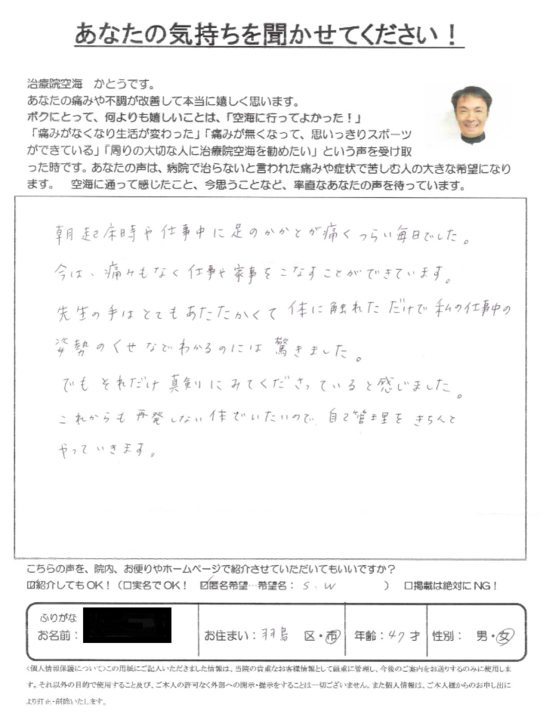 あなたの気持ちを聞かせてください！
治療院空海　かとうです。
あなたの痛みや不調が改善して本当に嬉しく思います。
ボクにとって、何よりも嬉しいことは、「空海に行ってよかった！」
「痛みがなくなり生活が変わった」「痛みが無くなって、思いっきりスポーツ
ができている」「周りの大切な人に治療院空海を勧めたい」という声を受け取
った時です。あなたの声は、病院で治らないと言われた痛みや症状で苦しむ人の大きな希望になり
ます。　空海に通って感じたこと、今思うことなど、率直なあなたの声を待っています。
朝起床時や仕事中に足のかかとが痛くつらい毎日でした。
今は、痛みもなく仕事や家事をこなすことができています。
先生の手はとてもあたたかくて 体に触れた だけで 私の仕事中の
姿勢のくせなどわかるのには 驚きました。
でも それだけ 真剣にみてくださっていると感じました。
これからも 再発しない体でいたいので 自己管理を きちんと
やっていきます。
こちらの声を、院内、お便りやホームページで紹介させていただいてもいいですか？
☑紹介してもOK！（□実名でOK！　☑匿名希望…希望名：S.W　）　□掲載は絶対にNG！
ふりがな
お名前：　お住まい：羽島　区・市　年齢：47才　性別：　男・女
〈個人情報保護について〉この用紙にご記入いただきました情報は、当院の貴重なお客様情報として厳重に管理し、今後のご案内をお送りするのみに使用しま
す。それ以外の目的で使用すること及び、ご本人の許可なく外部への開示・提示をすることは一切ございません。また個人情報は、ご本人様からのお申し出に
より訂正・削除いたします。